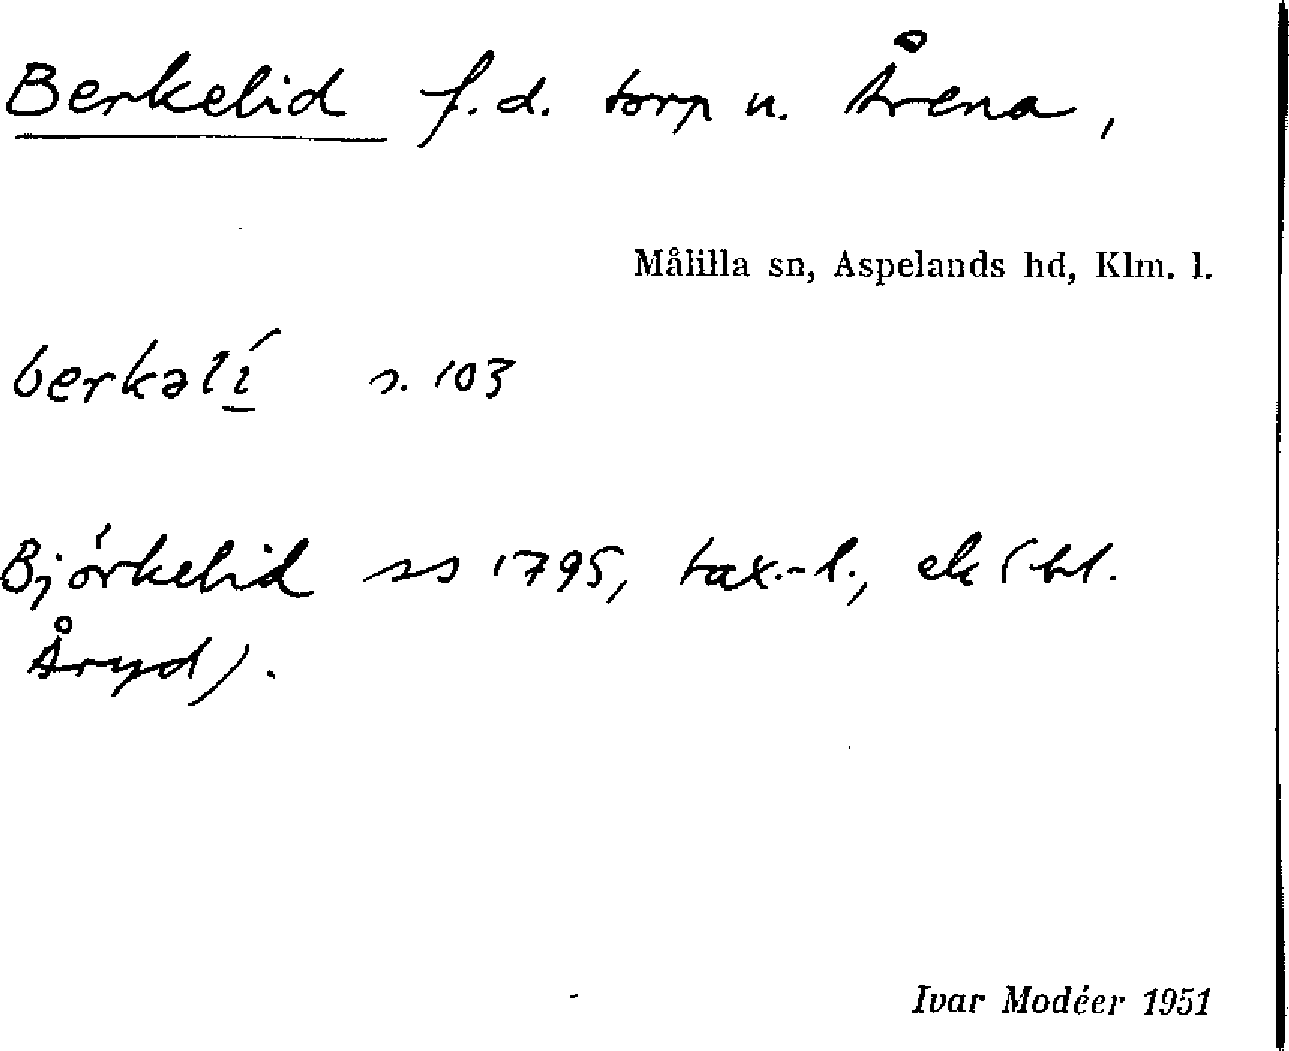 Berkelid f.d. torp u. Årena,
Målilla sn, Aspelands hd, Klm. l.
berkəlí s. 103
Björkelid ss 1795, tax.-l., ek (bl.
Åryd).
Ivar Modéer 1951